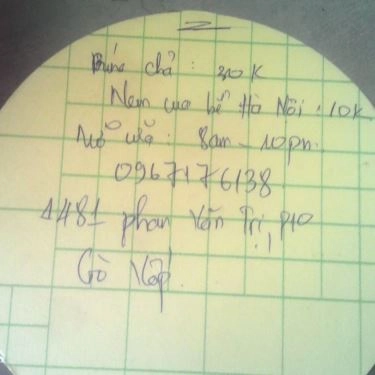 Bún chả : 30K
Nem cua bể Hà Nội : 10K
Mở cửa : 8am - 10pm.
0967176138.
1481 phan Văn Trị, p10
Gò Vấp.